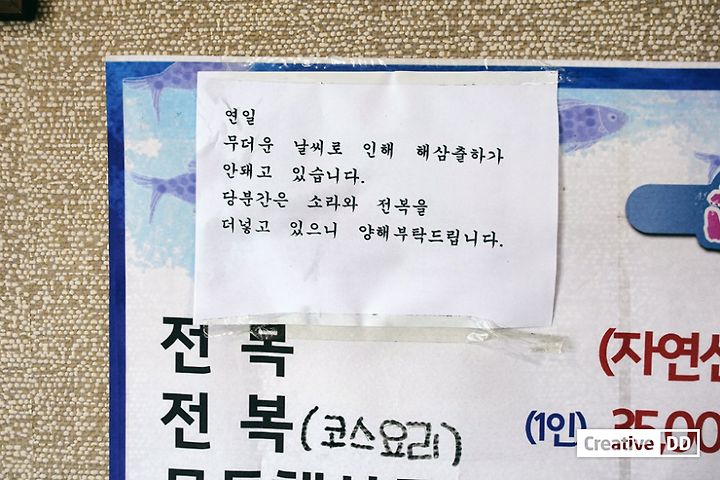 연일
무더운 날씨로 인해 해삼출하가
안돼고 있습니다.
당분간은 소라와 전복을
더넣고 있으니 양해부탁드립니다.
전복 (자연산
전복(코스요리) (1인) 35,00
Creative DD